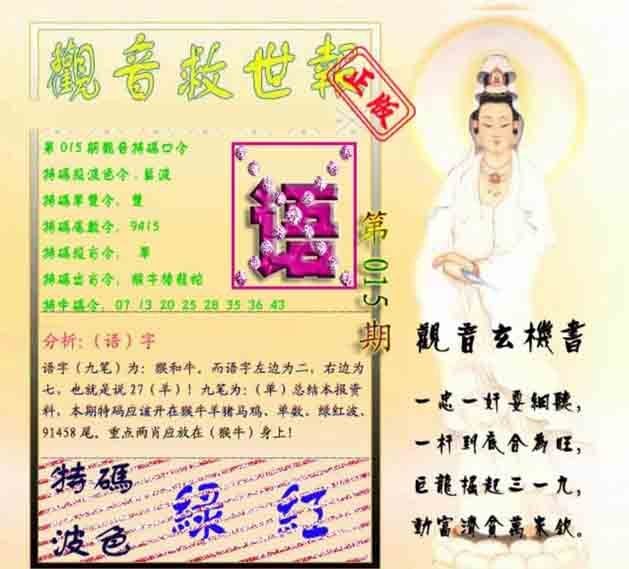 觀音救世報
正版
第015期觀音特碼口令
特碼段波色令:藍波
特碼單雙令:雙
特碼尾數令:9415
特碼段肖令: 單
特碼出肖令:猴牛豬龍蛇
特中碼令:07 13 20 25 28 35 36 43
语
第015期
分析:(语)字
语字(九笔)为:猴和牛。而语字左边为二,右边为
七,也就是说27(羊)!九笔为:(单)总结本报资
料,本期特码应该开在猴牛羊猪马鸡、单数。绿红波、
91458尾。重点两肖应放在(猴牛)身上!
特碼
波色
綠 红
觀音玄機書
一忠一奸要細聽,
一杆到底合為旺,
巨龍掘起三一九,
動富濟貧萬眾欽。